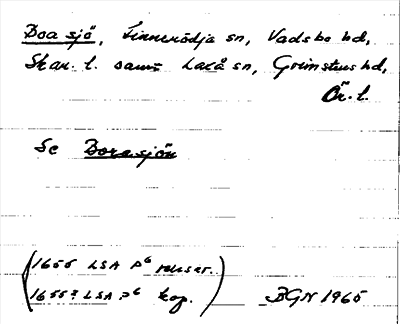 Boa sjö, Finnerödja sn, Vadsbo hd,
Skar. l. samt Laxå sn, Grimstens hd,
Ör. l.
Se Borasjön
(1655 LSA P6 renser.
1655? LSA P6 kop.) BGN 1965